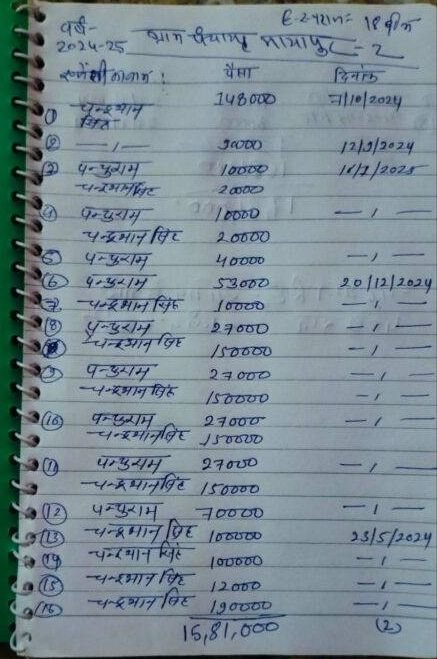 वर्ष- 2024-25
ग्राम पंचायत मायापुर - 2
पैसा दिनांक
① चन्द्रभान सिंह 148000 7/10/2024
② —,— 90000 12/9/2024
③ पन्चुराम 10000
चन्द्रभान सिंह 20000
④ पन्चुराम 10000 —,—
चन्द्रभान सिंह 20000
⑤ पन्चुराम 40000 —,—
⑥ पन्चुराम 53000 20/12/2024
⑦ चन्द्रभान सिंह 10000 —,—
⑧ पन्चुराम 27000 —,—
चन्द्रभान सिंह 150000 —,—
⑨ पन्चुराम 27000 —,—
चन्द्रभान सिंह 150000 —,—
⑩ पन्चुराम 27000 —,—
चन्द्रभान सिंह 150000
⑪ पन्चुराम 27000 —,—
चन्द्रभान सिंह 150000
⑫ पन्चुराम 70000 —,—
⑬ चन्द्रभान सिंह 100000 23/5/2024
⑭ चन्द्रभान सिंह 100000 —,—
⑮ चन्द्रभान सिंह 12000 —,—
⑯ चन्द्रभान सिंह 190000 —,—
15,81,000 (2)